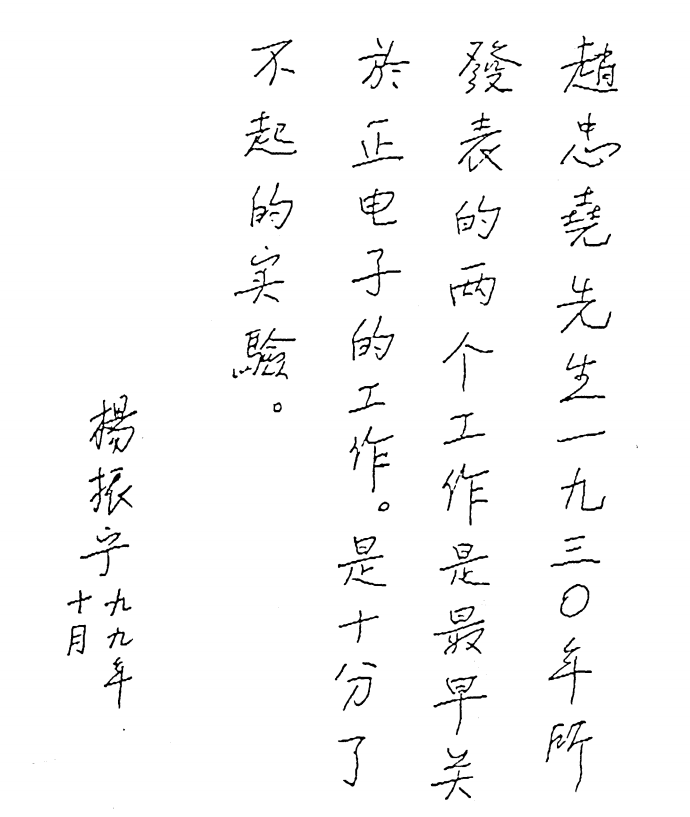 趙忠堯先生一九三〇年所
發表的两个工作是最早关
於正电子的工作。是十分了
不起的实驗。
楊振宁九九年
十月